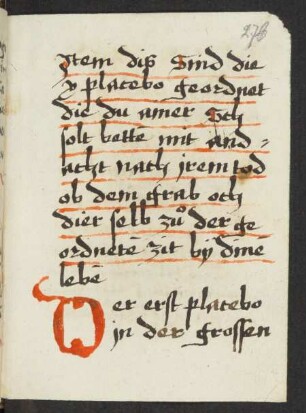 278
Item diß Sind die
v placebo geordnet
die du ainer Sch
solt bette mit and=
acht nach jrem tod
ob dem grab och
dier selb zů der ge
ordnetē zit bÿ dinē
lebē
Der erst placebo
in der grossen